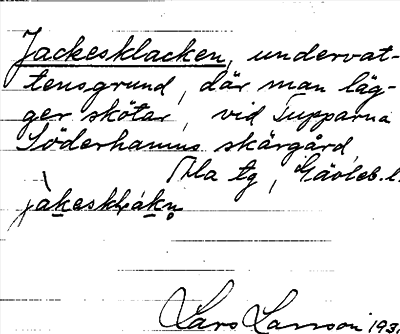 Jackesklacken, undervat-
tensgrund, där man läg-
ger skötar, vid Tupparna
Söderhamns skärgård,
Ala tg, Gävleb. l.
jàkesklák
Lars Larsson 193